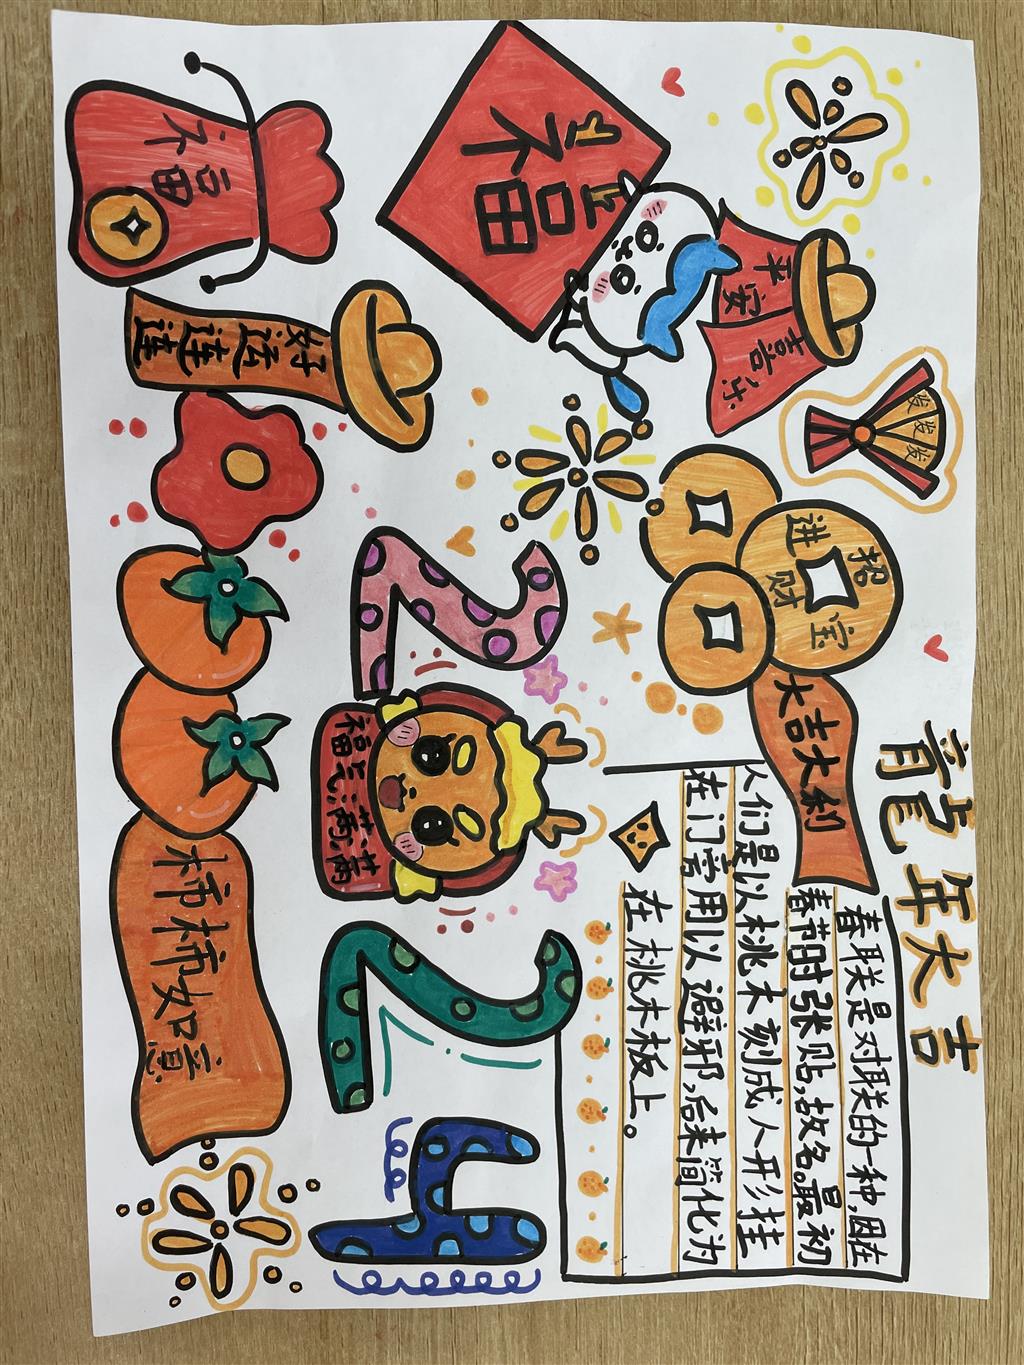 发发发
龍年大吉
平安
喜乐
招财进宝
大吉大利
春联是对联的一种,因在
春节时张贴,故名。最初
人们是以桃木刻成人形挂
在门旁用以避邪,后来简化为
在桃木板上。
福
2 24
福气满满
福
好运连连
柿柿如意